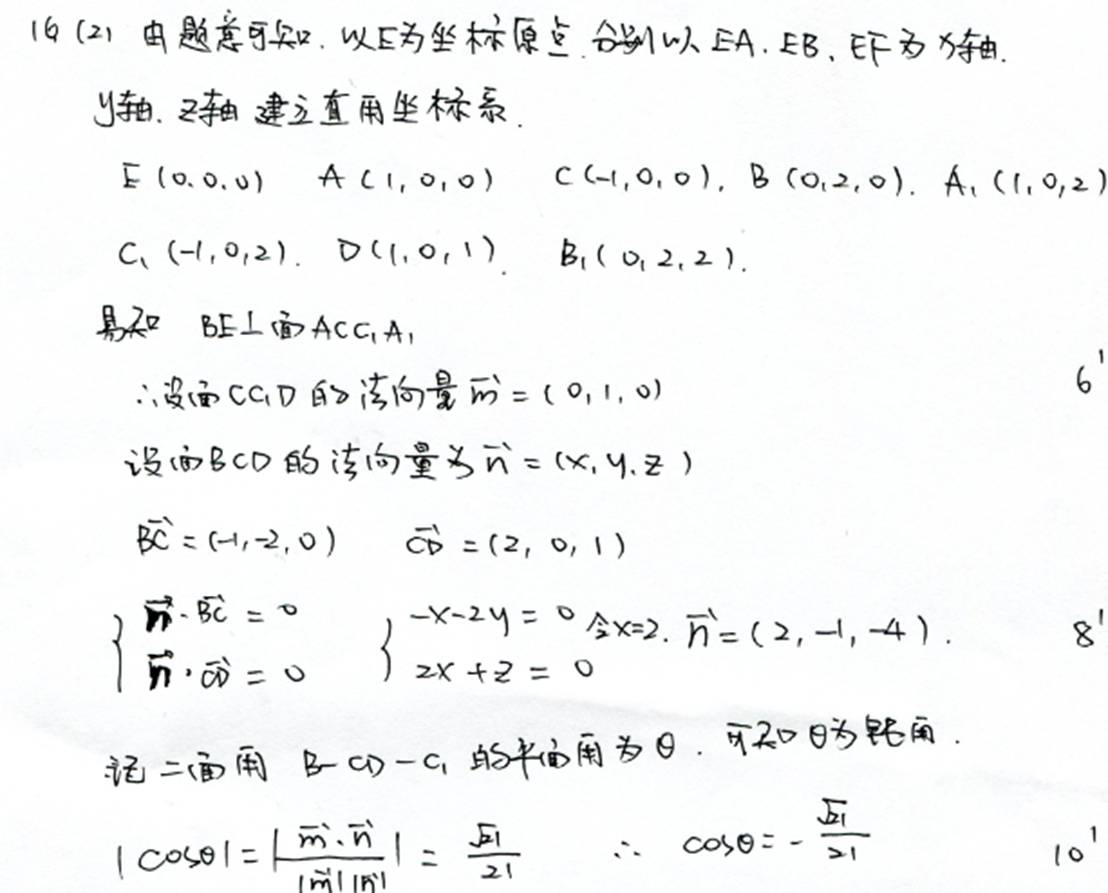 16 (2) 由题意可知. 以E为坐标原点. 分别以 EA. EB. EF为 x轴.
y轴. z轴 建立直角坐标系.
E (0.0.0) A (1,0,0) C(-1,0,0). B (0,2,0). A₁ (1,0,2)
C₁ (-1,0,2). D(1,0,1). B₁( 0,2,2).
易知 BE⊥面ACC₁A₁
∴设面CC₁D 的法向量 m⃗ = (0,1,0) 6'
设面BCD 的法向量为 n⃗ = (x,y,z)
BC⃗ = (-1,-2,0) CD⃗ = (2, 0, 1)
{ n⃗·BC⃗ = 0 { -x-2y = 0 令x=2. n⃗ = (2,-1,-4). 8'
n⃗·CD⃗ = 0 2x+z = 0
记二面角 B-CD-C₁ 的平面角为θ. 可知θ为钝角.
|cosθ| = |m⃗·n⃗ / |m⃗||n⃗|| = √21/21 ∴ cosθ = -√21/21 10'